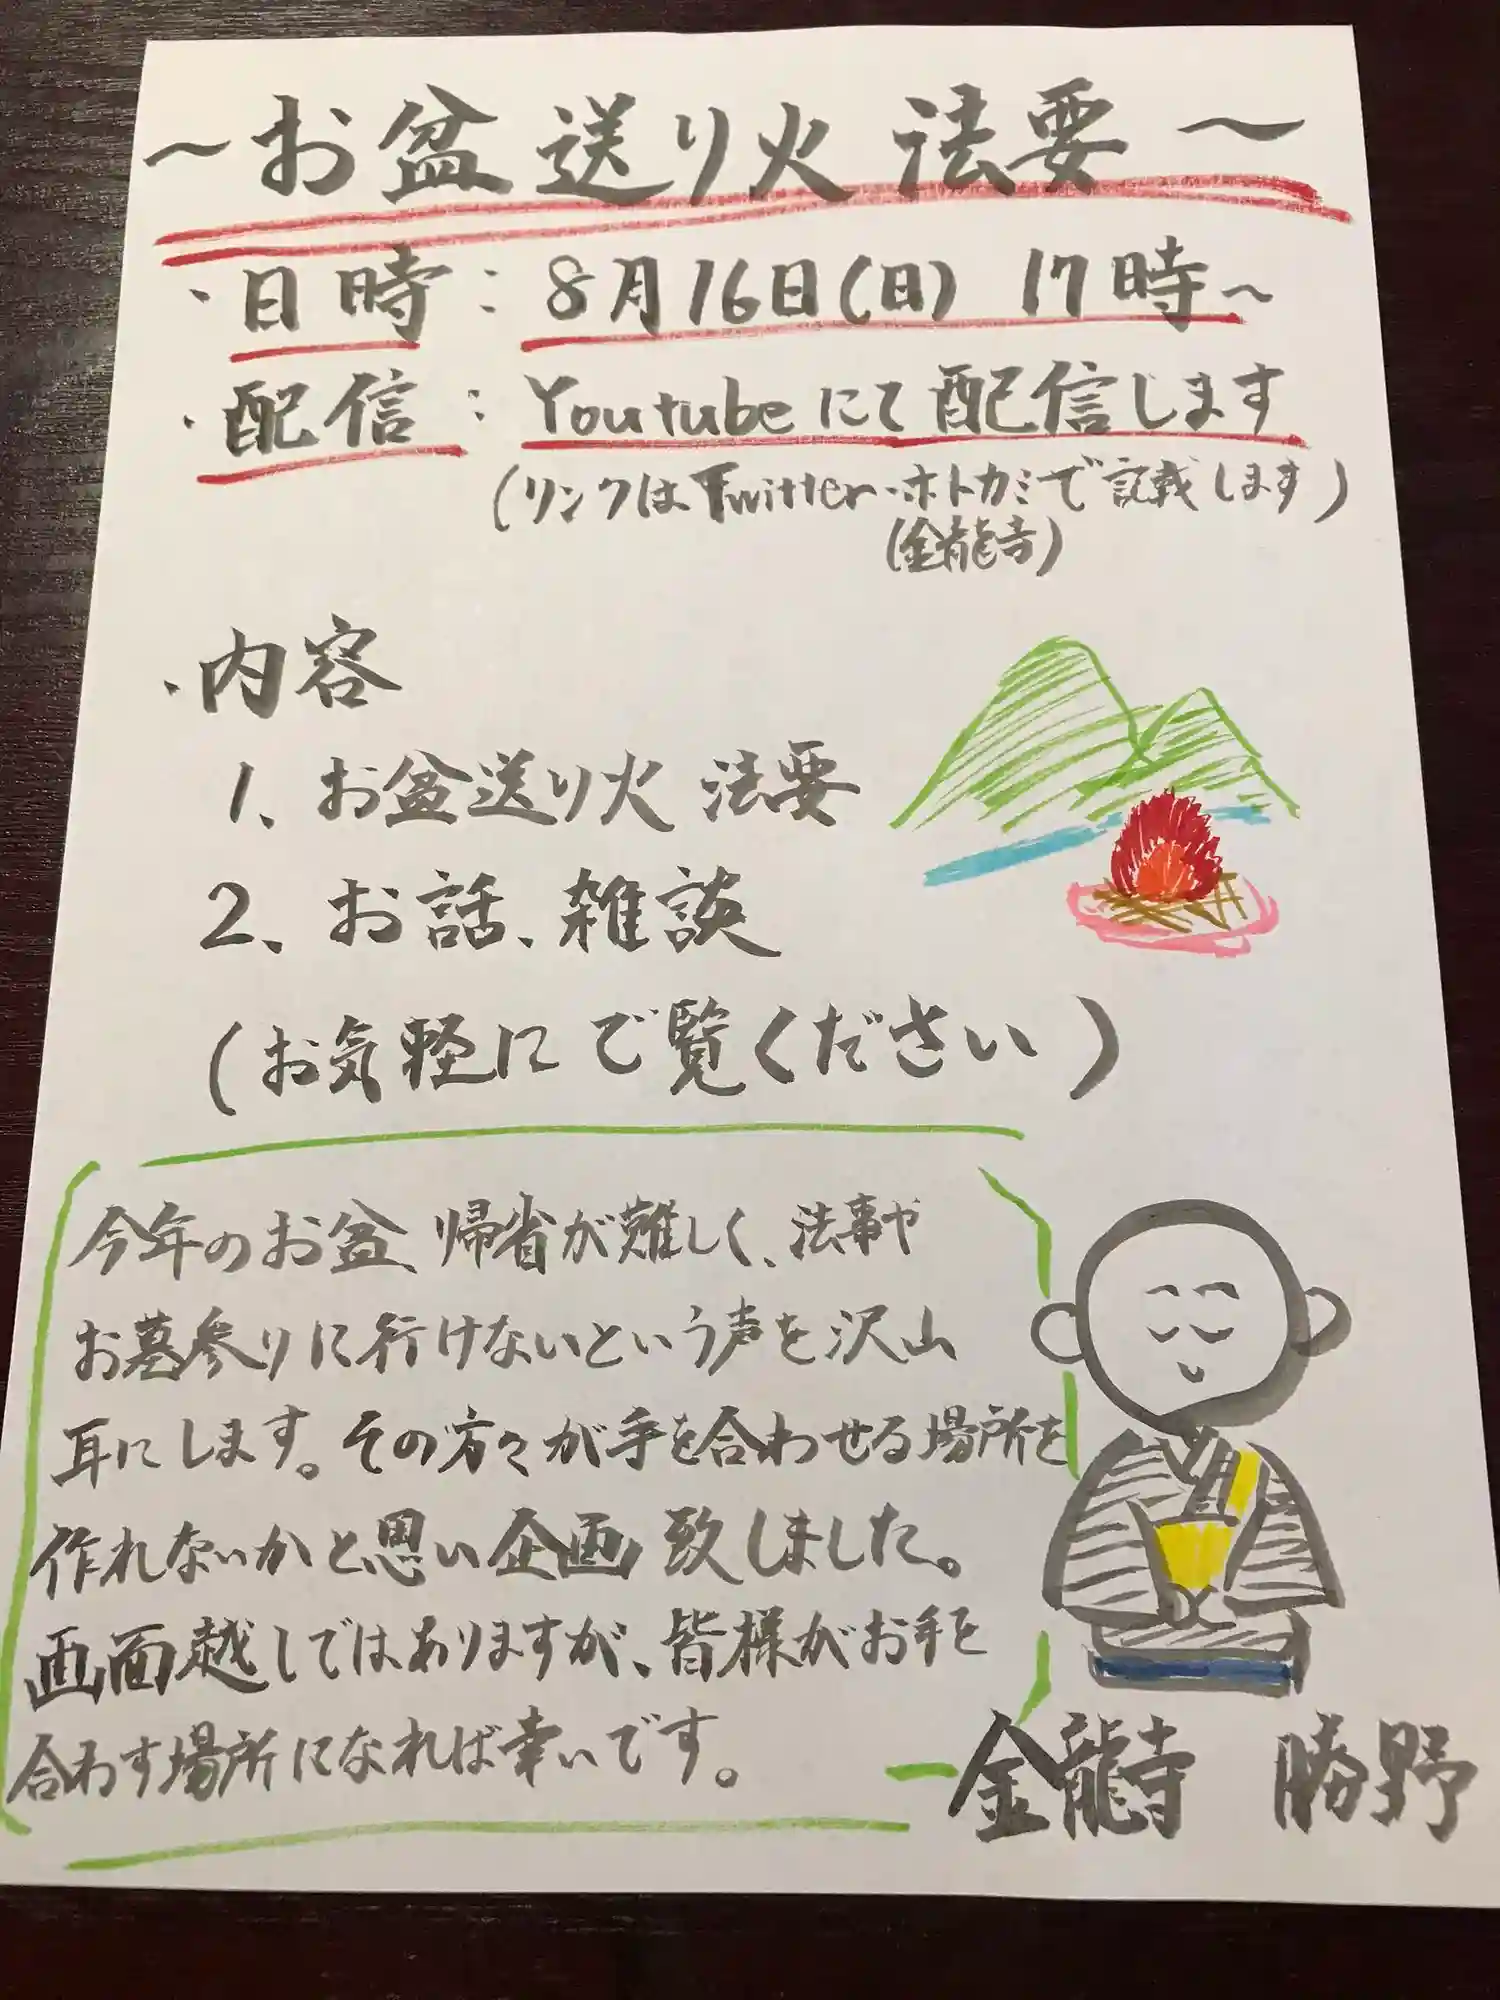 ～お盆送り火法要～
・日時：8月16日(日) 17時～
・配信：Youtubeにて配信します
(リンクはTwitter・ホトカミで記載します)
(金龍寺)
・内容
1、お盆送り火 法要
2、お話、雑談
(お気軽にご覧ください)
今年のお盆、帰省が難しく、法事や
お墓参りに行けないという声を沢山
耳にします。その方々が手を合わせる場所を
作れないかと思い企画致しました。
画面越しではありますが、皆様がお手を
合わす場所になれば幸いです。
金龍寺 勝野